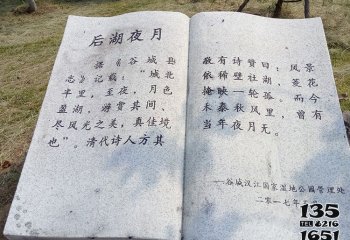 后湖夜月
据《谷城县
志》记载：“城北
半里，至夜，月色
盈湖，游赏其间，
尽风光之美，真佳境
也”。清代诗人方其
敬有诗赞曰：风景
依稀壁社湖，菱花
掩映一轮孤。而今
未秦秋风里，曾有
当年夜月无。
谷城汉江国家湿地公园管理处
二零一七年
135
216
1651